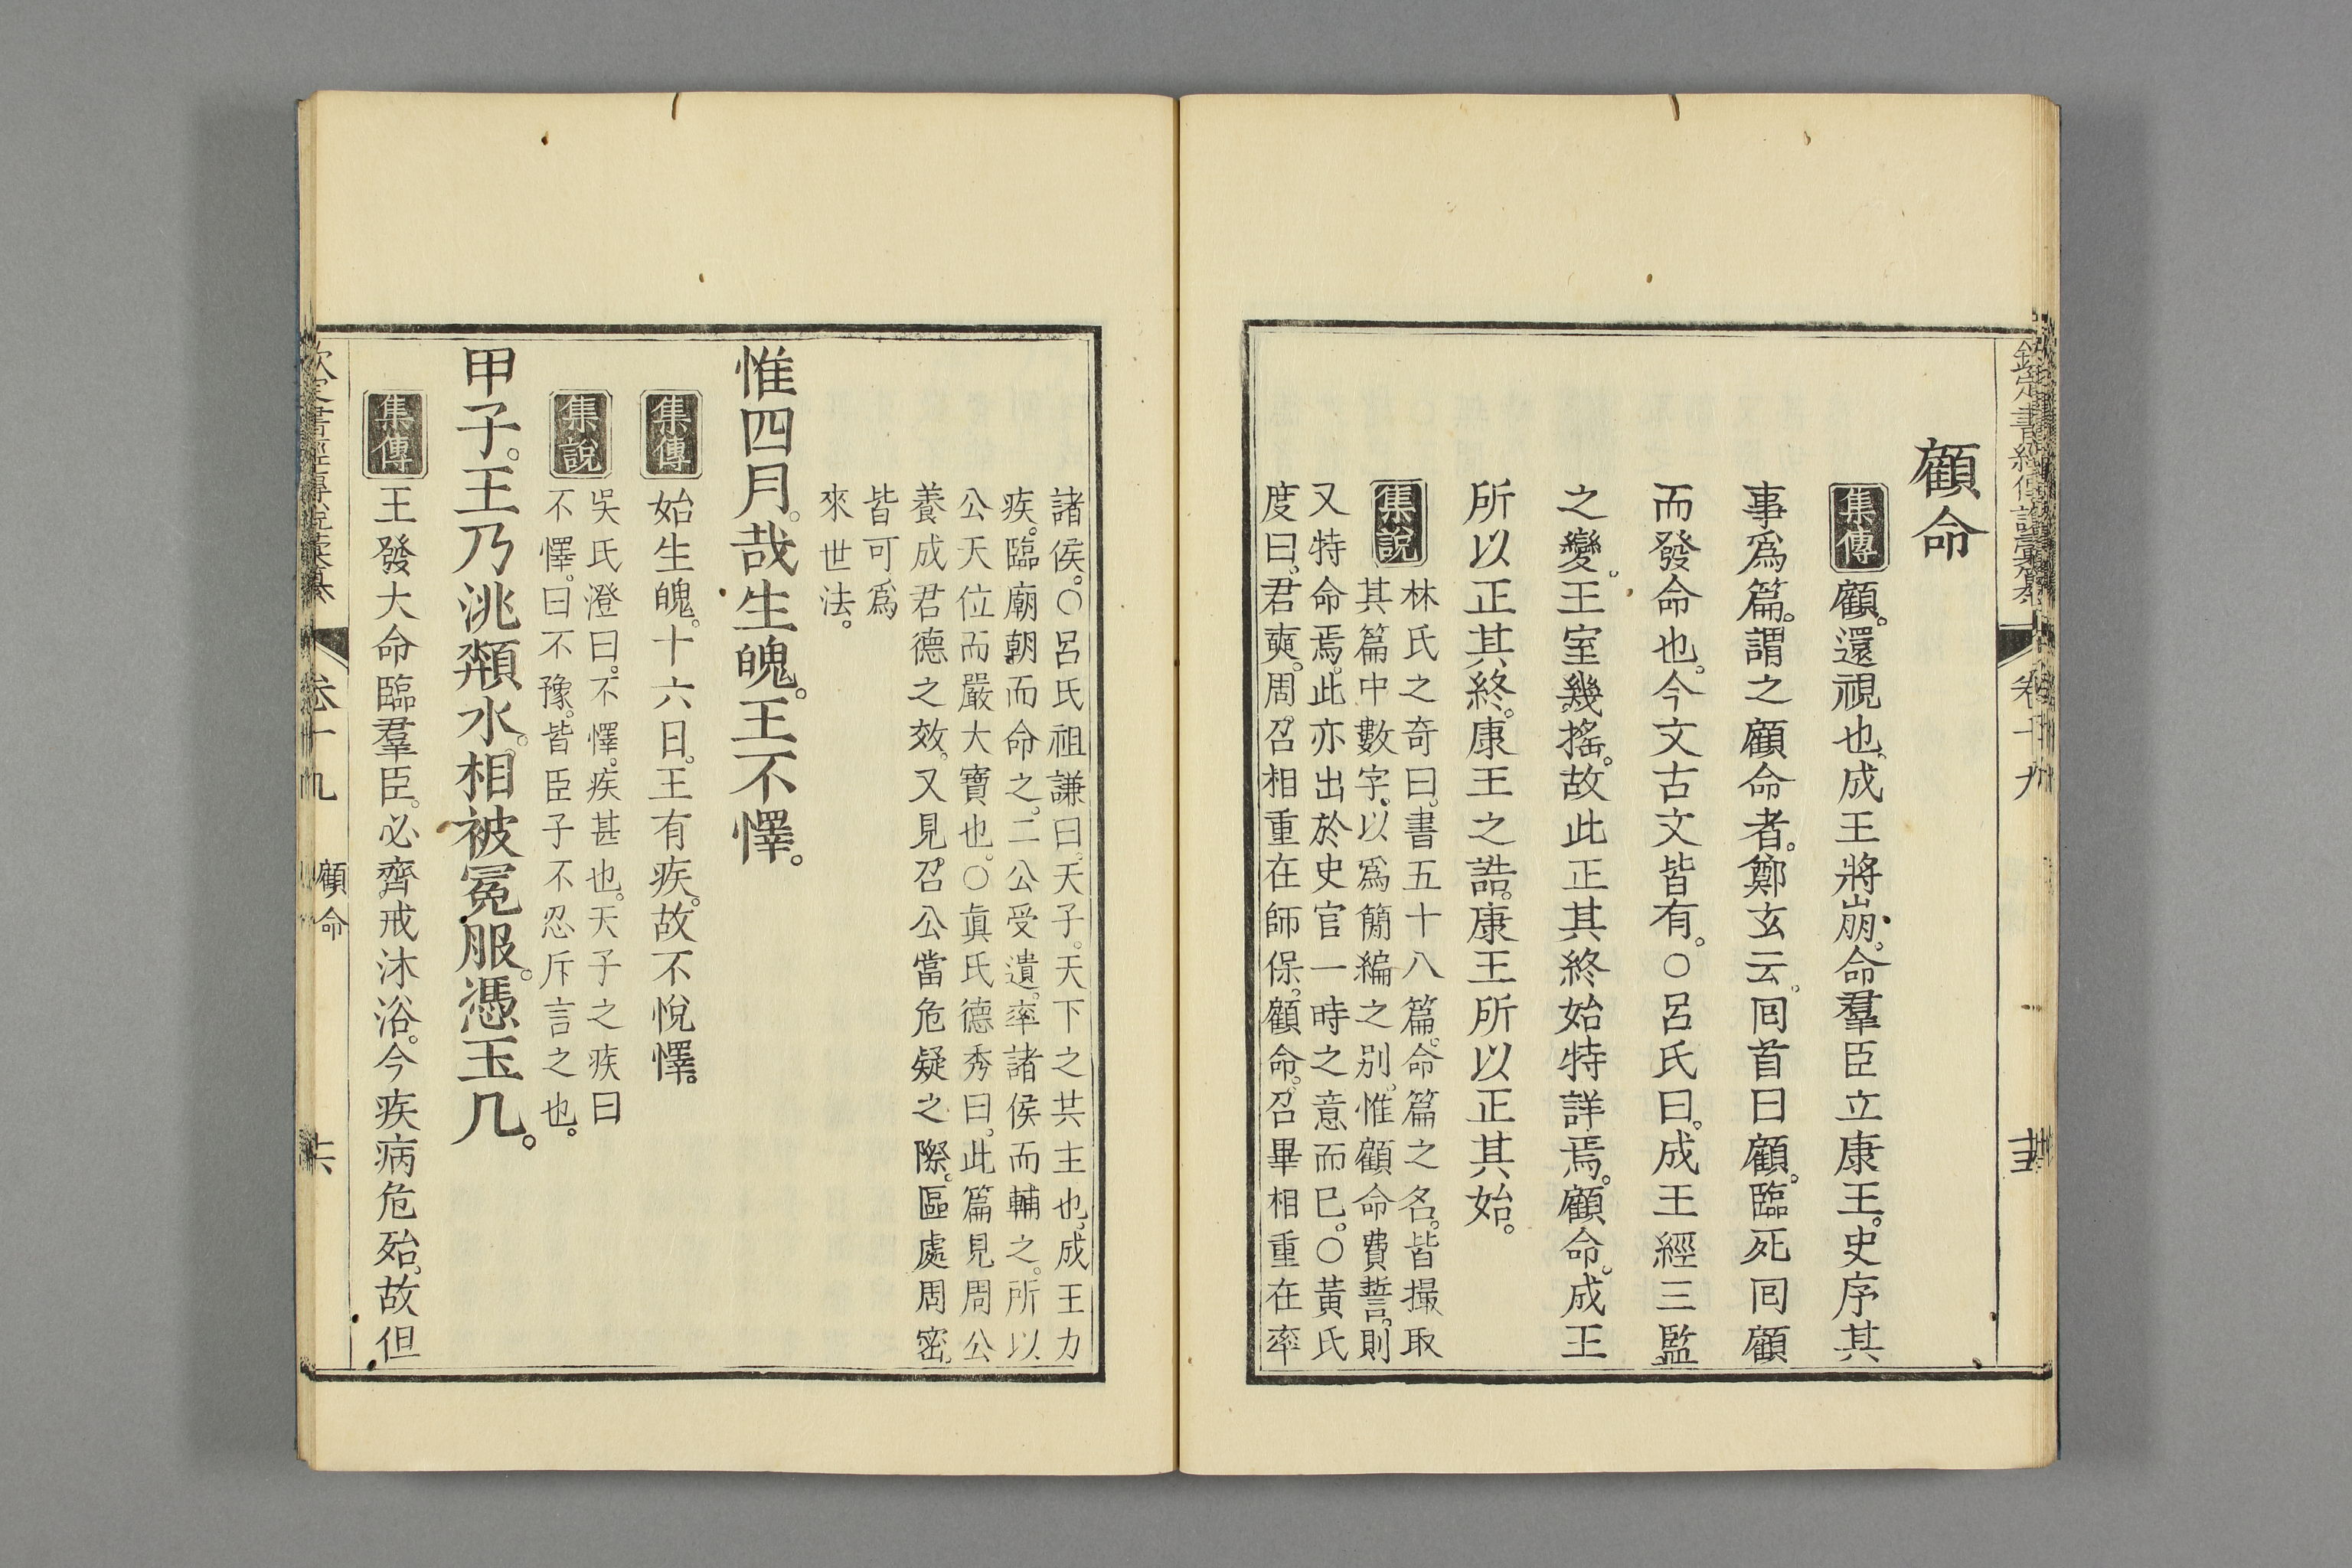 顧命
集傳 顧。還視也。成王將崩。命羣臣立康王。史序其
事爲篇。謂之顧命者。鄭玄云。回首曰顧。臨死回顧
而發命也。今文古文皆有。○呂氏曰。成王經三監
之變。王室幾搖。故此正其終始特詳焉。顧命。成王
所以正其終。康王之誥。康王所以正其始。
集說 林氏之奇曰。書五十八篇。命篇之名。皆撮取
其篇中數字。以爲簡編之别。惟顧命費誓。則
又特命焉。此亦出於史官一時之意而已。○黃氏
度曰。君奭。周召相重在師保。顧命。召畢相重在率
諸侯。○呂氏祖謙曰。天子。天下之共主也。成王力
疾。臨廟朝而命之。二公受遺。率諸侯而輔之。所以
公天位而嚴大寶也。○眞氏德秀曰。此篇見周公
養成君德之效。又見召公當危疑之際。區處周密。
皆可爲
來世法。
惟四月。哉生魄。王不懌。
集傳 始生魄。十六日。王有疾。故不悅懌。
集說 吳氏澄曰。不懌。疾甚也。天子之疾曰
不懌。曰不豫。皆臣子不忍斥言之也。
甲子。王乃洮頮水。相被冕服。憑玉几。
集傳 王發大命臨羣臣。必齊戒沐浴。今疾病危殆。故但
卷十九 顧命